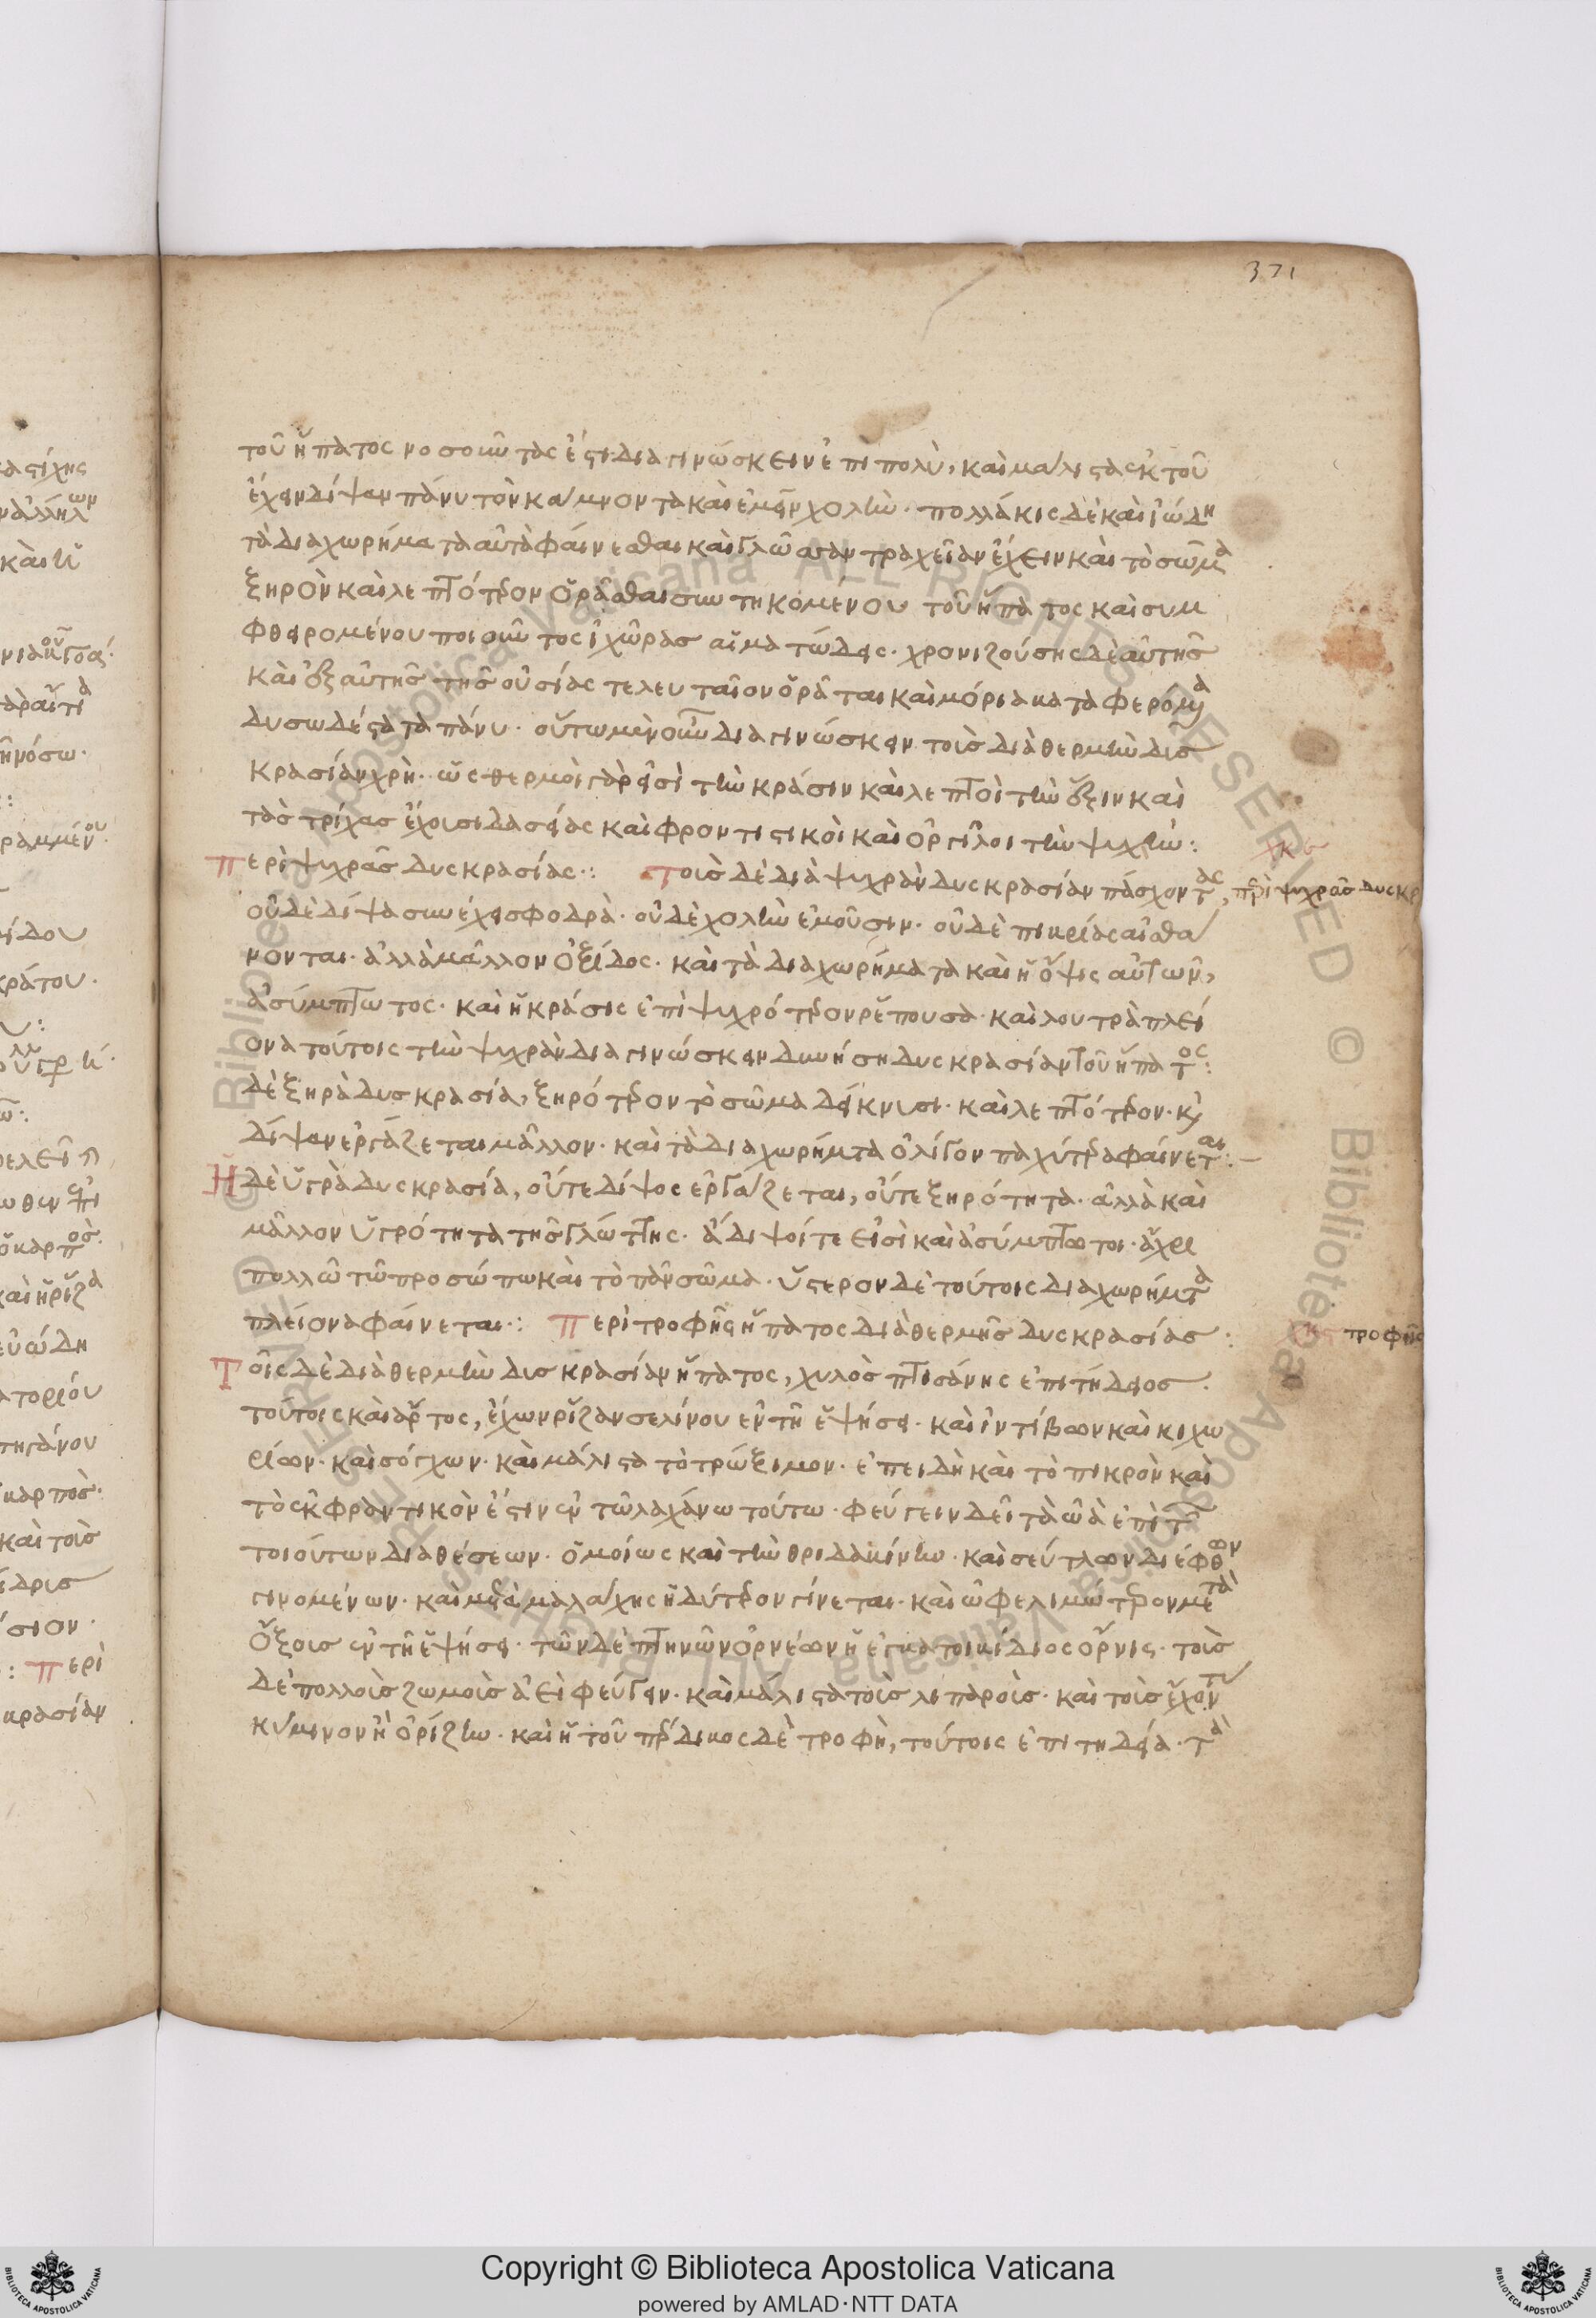 371
τοῦ ἥπατος νοσοῦντας ἔστι διαγινώσκειν ἐπιπολὺ, καὶ μάλιστα ἐκ τοῦ
ἔχειν δίψαν πάνυ τὸν κάμνοντα καὶ ἐμεῖν χολὴν· πολλάκις δὲ καὶ ἰώδη
τὰ διαχωρήματα αὐτὰ φαίνεσθαι καὶ γλῶσσαν τραχεῖαν ἔχειν καὶ τὸ σῶμα
ξηρὸν καὶ λεπτότερον ὁρᾶσθαι συντηκομένου τοῦ ἥπατος καὶ συμ
φθειρομένου ποιοῦντος ἰχῶρας αἱματώδεις· χρονιζούσης δὲ αὐτῆς
καὶ ἐξ αὐτῆς τῆς οὐσίας τελευταῖον ὁρᾶται καὶ μόρια καταφερόμενα
δυσωδέστατα πάνυ· οὕτω μὲν οὖν διαγινώσκειν τοὺς διὰ θερμὴν δισ
κρασίαν χρὴ· ὡς θερμοὶ γάρ εἰσι τὴν κράσιν καὶ λεπτοὶ τὴν ἕξιν καὶ
τὰς τρίχας ἔχουσι δασείας καὶ φροντιστικοὶ καὶ ὀργίλοι τὴν ψυχὴν:
Περὶ ψυχρᾶς δυσκρασίας: Τοὺς δὲ διὰ ψυχρὰν δυσκρασίαν πάσχοντας,
περὶ ψυχρᾶς δυσκρ
οὐδὲ δίψα συνέχει σφοδρὰ· οὐδὲ χολὴν ἐμοῦσιν· οὐδὲ πικρίας αἰσθά
νονται· ἀλλὰ μᾶλλον ὀξίδος· καὶ τὰ διαχωρήματα καὶ ἡ ὄψις αὐτῶν,
ἀσύμπτωτος· καὶ ἡ κράσις ἐπὶ ψυχρότερον ῥέπουσα· καὶ λουτρὰ πλεί
ονα τούτοις τὴν ψυχρὰν διαγινώσκειν δυνήση δυσκρασίαν τοῦ ἥπατος:
δὲ ξηρὰ δυσκρασία, ξηρότερον τὸ σῶμα δείκνυσι· καὶ λεπτότερον· καὶ
δίψαν ἐργάζεται μᾶλλον· καὶ τὰ διαχωρήματα ὀλίγον παχύτερα φαίνεται:
Ἡ δὲ ὑγρὰ δυσκρασία, οὔτε δίψος ἐργάζεται, οὔτε ξηρότητα· ἀλλὰ καὶ
μᾶλλον ὑγρότητα τῆς γλώττης· ἄδιψοί τε εἰσὶ καὶ ἀσύμπτωτοι· ἄχρι
πολλῶ τῶ προσώπω καὶ τὸ πᾶν σῶμα· ὕστερον δὲ τούτοις διαχωρήματα
πλείονα φαίνεται: Περὶ τροφῆς ἥπατος διὰ θερμῆς δυσκρασίας:
τροφῆς
Τοῖς δὲ διὰ θερμὴν δισκρασίαν ἥπατος, χυλὸς πτισάνης ἐπιτήδειος.
τούτοις καὶ ἄρτος, ἔχων ῥίζαν σελίνου ἐν τῇ ἑψήσει· καὶ ἰντίβων καὶ κιχω
ρίων· καὶ σόγχων· καὶ μάλιστα τὸ τρώξιμον· ἐπειδὴ καὶ τὸ πικρὸν καὶ
τὸ ἐκφραντικὸν ἔστιν ἐν τῶ λαχάνω τούτω· φεύγειν δεῖ τὰ ὠὰ ἐπὶ τῶν
τοιούτων διαθέσεων· ὁμοίως καὶ τὴν θριδακίνην· καὶ σεύτλων διέφθων
γινομένων· καὶ μετὰ μαλάχης ἡδύτερον γίνεται· καὶ ὠφελιμώτερον μετὰ
ὄξους ἐν τῇ ἑψήσει· τῶν δὲ πτηνῶν ὀρνέων ἡ ἐγκατοικίδιος ὄρνις· τοὺς
δὲ πολλοὺς ζωμοὺς ἀεὶ φεύγειν· καὶ μάλιστα τοὺς λιπαροὺς· καὶ τοὺς ἔχοντ
κύμινον ἢ ὀρίζην· καὶ ἡ τοῦ πέρδικος δὲ τροφὴ, τούτοις ἐπιτηδεία· τὰ
Copyright © Biblioteca Apostolica Vaticana
powered by AMLAD·NTT DATA